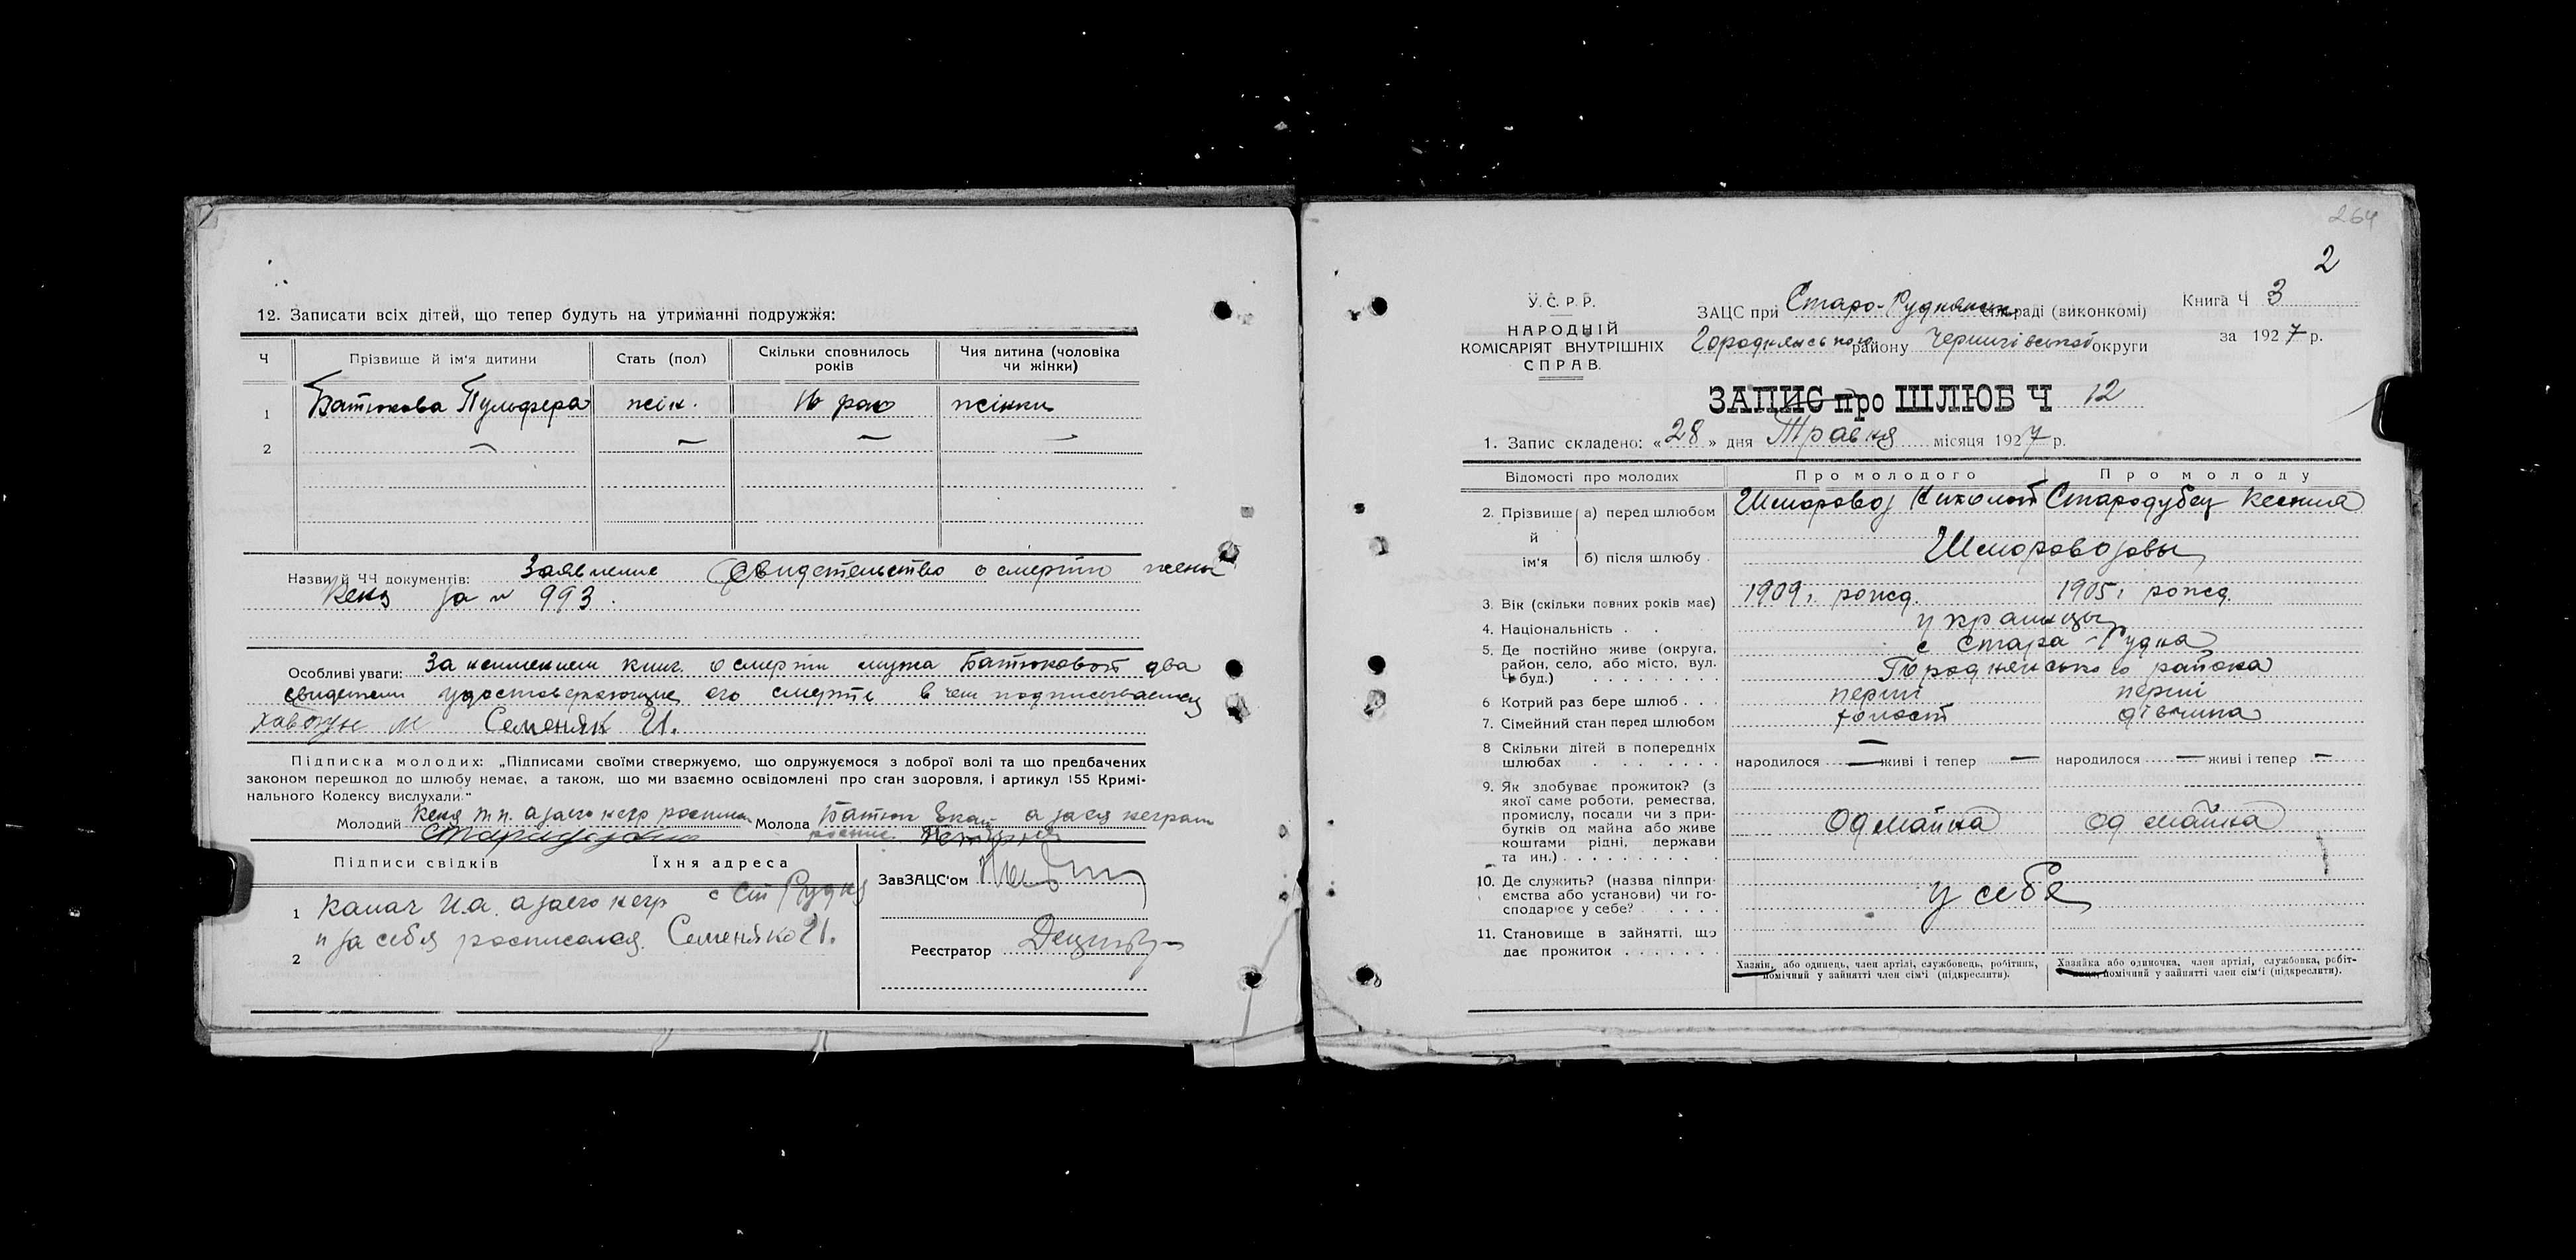 12. Записати всіх дітей, що тепер будуть на утриманні подружжя:
Ч Прізвище й ім'я дитини Стать (пол) Скільки сповнилось років Чия дитина (чоловіка чи жінки)
1 Батюкова Пульфера жін. 16 рао жінки
2 — — — —
Назви й ЧЧ документів: Заявление Свидетельство о смерти жены
Кеня за № 993.
Особливі уваги: За неимением книг. о смерти мужа Батюковой два
свидетели удостоверяющие его смерть в чем подписываемся
Хавдун М Семеняк И.
Підписка молодих: „Підписами своїми ствержуємо, що одружуємося з доброї волі та що предбачених
законом перешкод до шлюбу немає, а також, що ми взаємно освідомлені про стан здоровля, і артикул 155 Кримі-
нального Кодексу вислухали."
Молодий Кеня т.п. а за его негр росписал Молода Батюк Екат а за ея неграм
Підписи свідків Їхня адреса
1 Калач И.а. а за его негр с Ст Рудня
и за себя росписался Семеняко И.
2
ЗавЗАЦС'ом
Реєстратор
264
2
У.С.Р.Р.
НАРОДНІЙ
КОМІСАРІЯТ ВНУТРІШНІХ
СПРАВ.
ЗАЦС при Старо-Руднянськ раді (виконкомі)
Городнянського району Чернигівської округи
Книга Ч 3
за 1927 р.
ЗАПИС про ШЛЮБ Ч 12
1. Запис складено: «28» дня Травня місяця 1927 р.
Відомості про молодих Про молодого Про молоду
2. Прізвище й ім'я а) перед шлюбом Шмаровоз Николай Стародубец Ксения
б) після шлюбу Шмаровозовы
3. Вік (скільки повних років має) 1909 г. рожд. 1905 г. рожд.
4. Національність . . украинцы
5. Де постійно живе (округа, район, село, або місто, вул. й буд.) с Стара-Рудня
Городнянського района
6 Котрий раз бере шлюб . . . перший перший
7. Сімейний стан перед шлюбом холост дівчина
8 Скільки дітей в попередніх шлюбах народилося — живі і тепер — народилося — живі і тепер —
9. Як здобуває прожиток? (з якої саме роботи, ремества, промислу, посади чи з прибутків од майна або живе коштами рідні, держави та ин.) Од майна Од майна
10. Де служить? (назва підприємства або установи) чи господарює у себе? у себе
11. Становище в зайнятті, що дає прожиток
Хазяїн, або одинець, член артілі, службовець, робітник, помічний у зайнятті член сім'ї (підкреслити).
Хазяйка або одиночка, член артілі, службовка, робітниця, помічний у зайнятті член сім'ї (підкреслити).